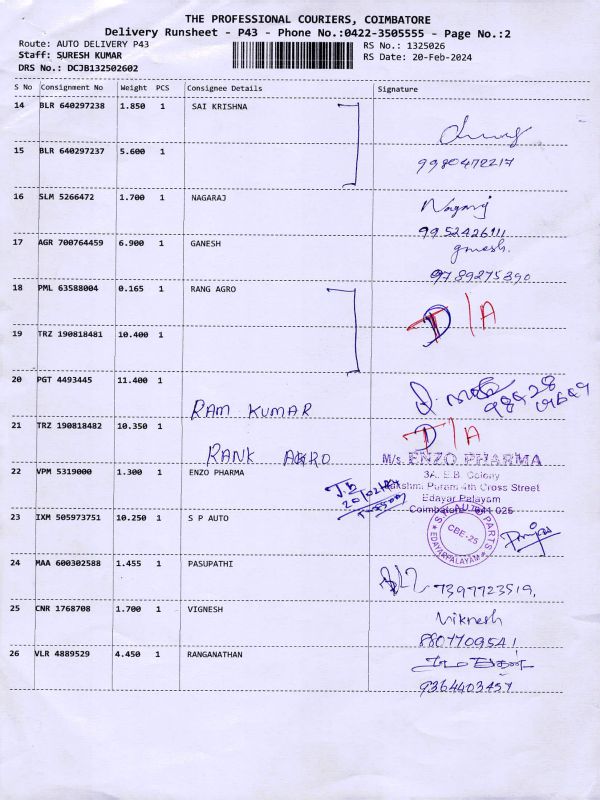 THE PROFESSIONAL COURIERS, COIMBATORE
Delivery Runsheet - P43 - Phone No.:0422-3505555 - Page No.:2
Route: AUTO DELIVERY P43
RS No.: 1325026
Staff: SURESH KUMAR
RS Date: 20-Feb-2024
DRS No.: DCJB132502602
S No Consignment No Weight PCS Consignee Details Signature
14 BLR 640297238 1.850 1 SAI KRISHNA
15 BLR 640297237 5.600 1
9980472217
16 SLM 5266472 1.700 1 NAGARAJ Nagaraj
9952426111
17 AGR 700764459 6.900 1 GANESH gmesh.
9789275390
18 PML 63588004 0.165 1 RANG AGRO D/A
19 TRZ 190818481 10.400 1
20 PGT 4493445 11.400 1
RAM KUMAR
21 TRZ 190818482 10.350 1 D/A
RANK AGRO
M/s. ENZO PHARMA
22 VPM 5319000 1.300 1 ENZO PHARMA
3A, E.B. Colony
Lakshmi Puram 4th Cross Street
Edayar Palayam
Coimbatore - 641 025
23 IXM 505973751 10.250 1 S P AUTO
AUTO PARTS
CBE-25
EDAYARPALAYAM
24 MAA 600302588 1.455 1 PASUPATHI
7397723519,
25 CNR 1768708 1.700 1 VIGNESH Viknesh
8807709541
26 VLR 4889529 4.450 1 RANGANATHAN
9364403457